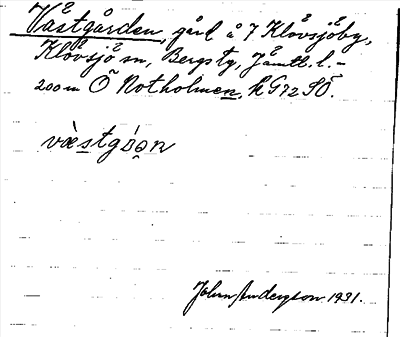 Västgården, gård å 7 Klövsjöby,
Klövsjö sn, Bergs tg, Jämtl. l. –
200 m Ö Notholmen, k G 72 SÖ.
væstgóən
Johan Anderson 1931.